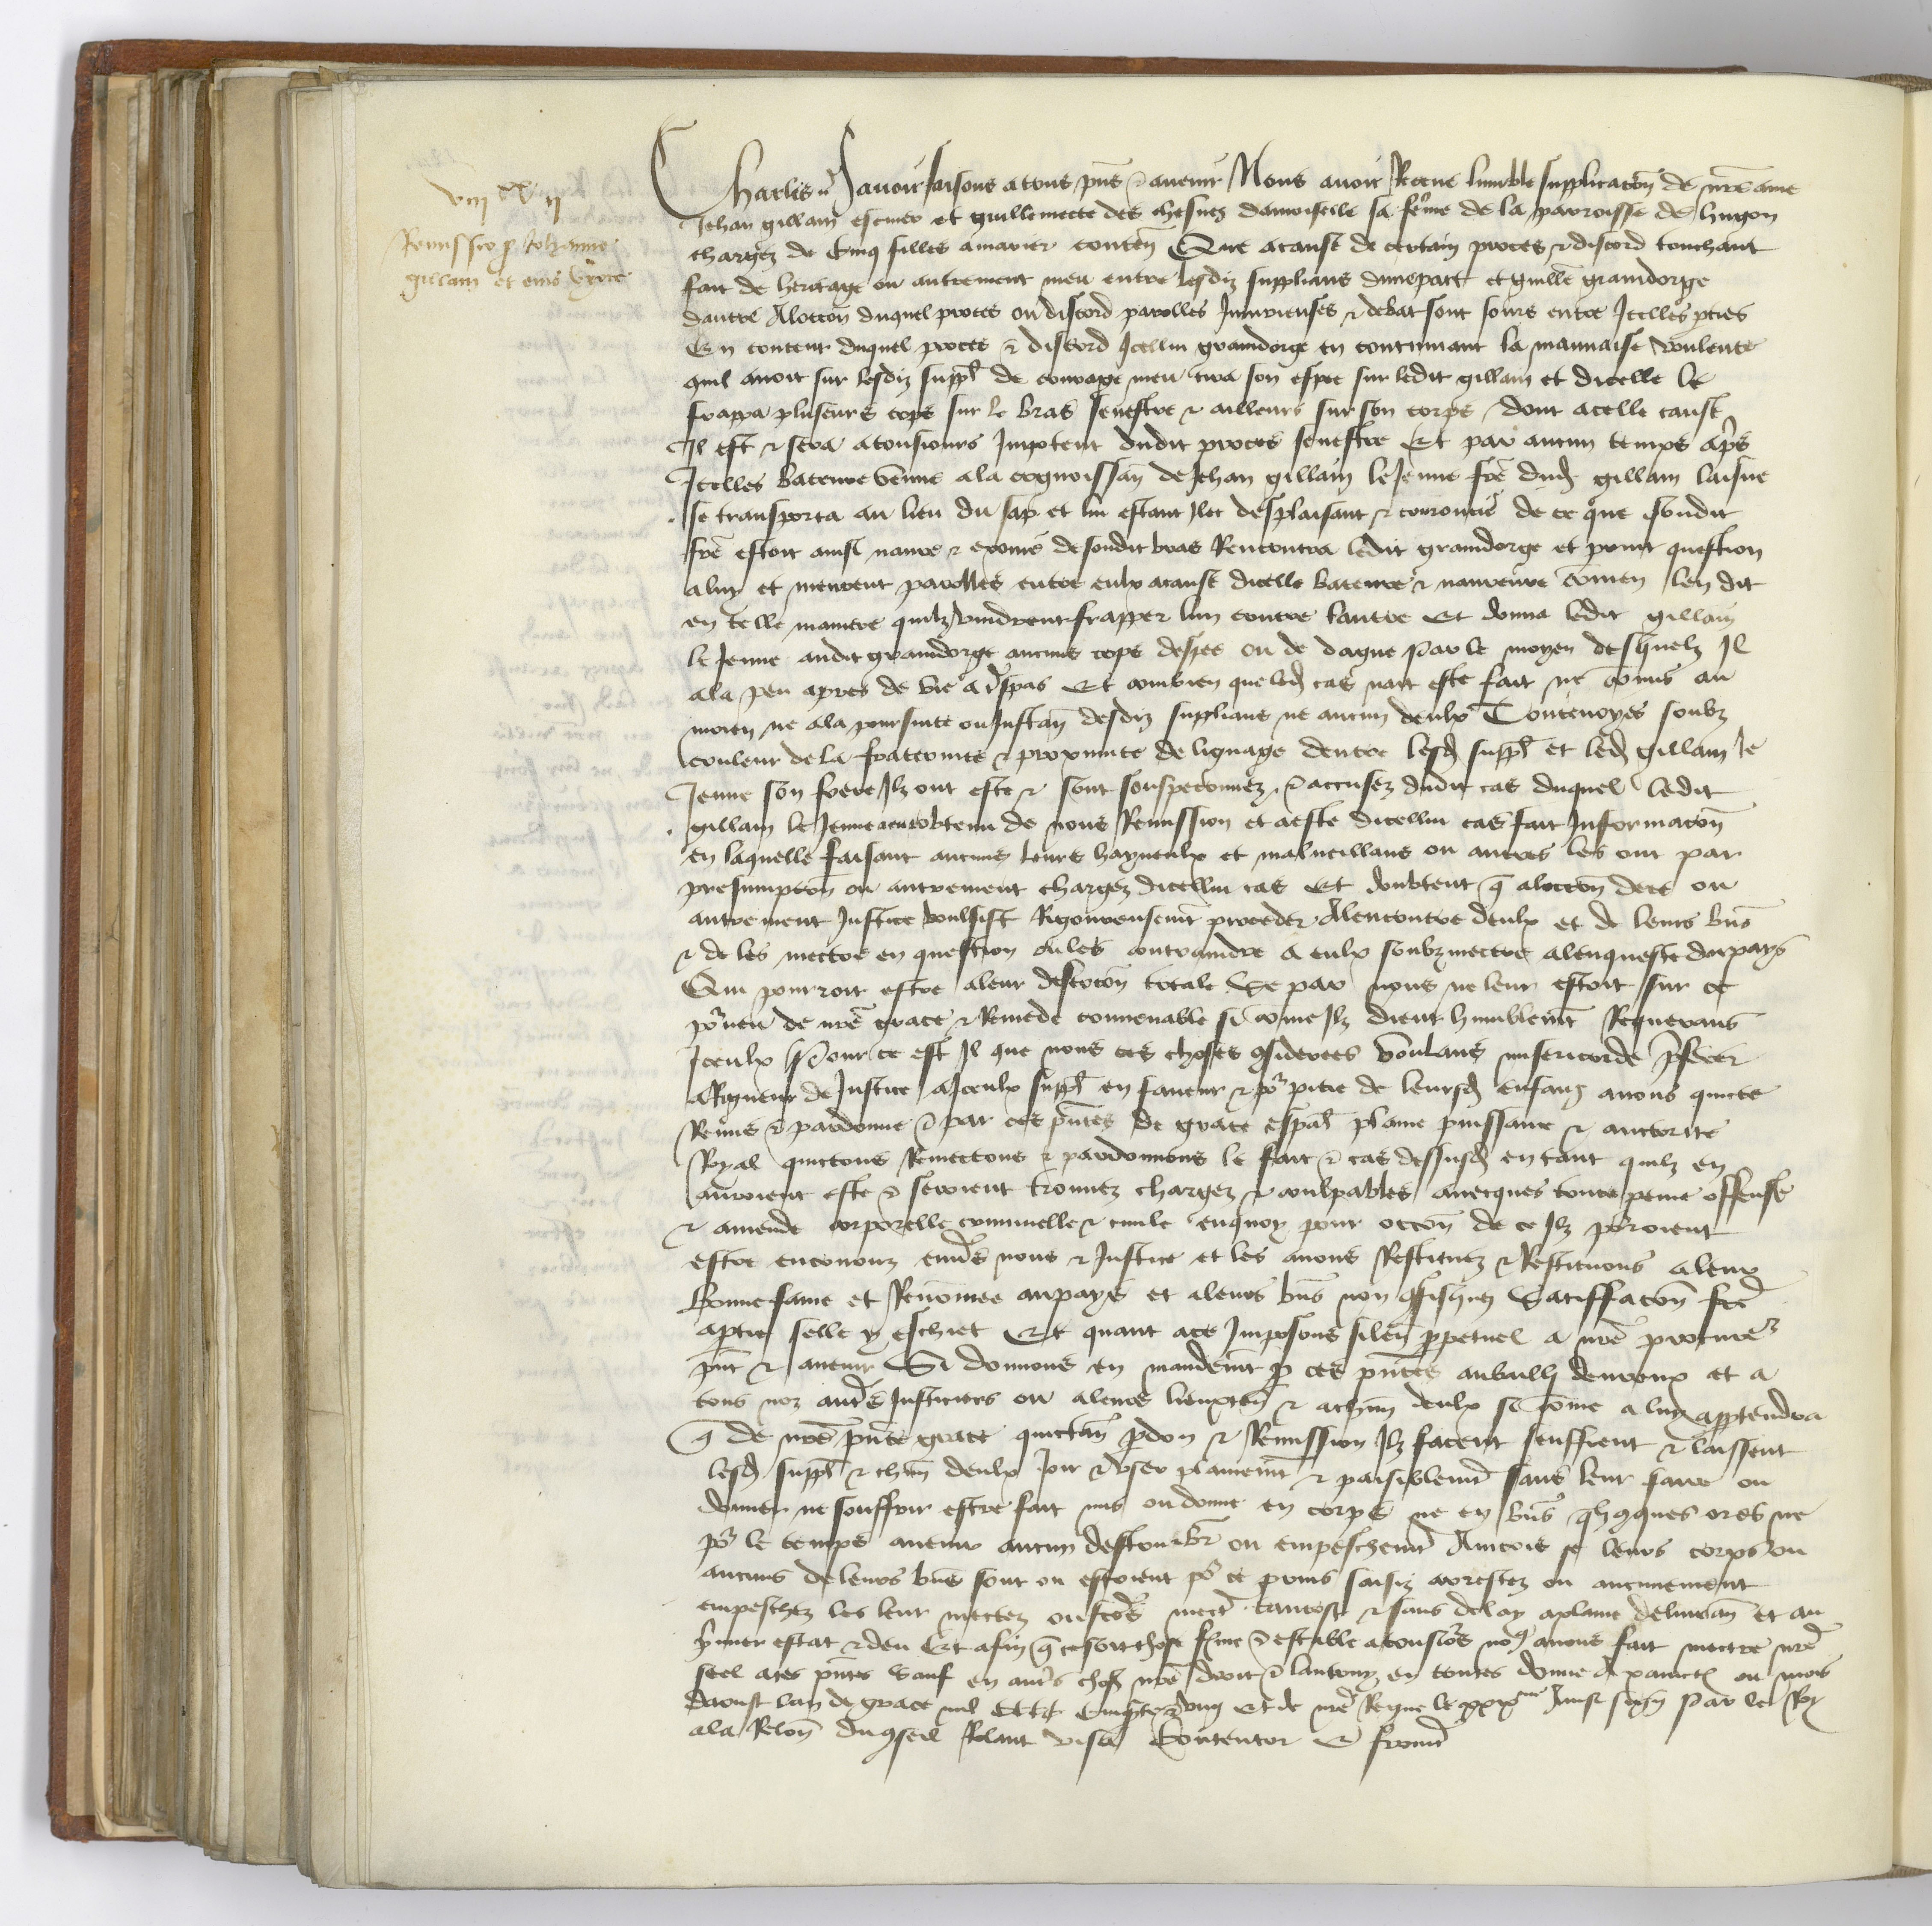 viii xx ii
Remissio p Johanne
gillain et eius uxore
Charles &c Savoir faisons a tous pns & avenir Nous avoir Receue lumble supplicacon de nre ame
Jehan gillain escuier et guillemecte des chesnes damoiselle sa feme de la parroisse de hugon
chargez de Cinq filles a marier conten Que a cause de certain proces & discord touchant
fait de heritage ou autrement meu entre lesdiz supplians dunepart et guille graindorge
dautre Aloccon duquel proces ou discord parolles Injurieuses & debat sont sours entre Icelles pties
En content duquel proces & discord Icellui graindorge en continuant la mauvaise voulente
quil avoit sur lesdiz suppl de courage meu tira son espee sur ledit gillain et dicelle le
frappa pluseurs cops sur le bras senestre & ailleurs sur son corps dont acelle cause
Il est & sera atousiours Impotent dudit proces senestre Et par aucun temps apes
Icelles bateure venue ala cognoissan de Jehan gillain le Jeune fre dud gillain laisne
se transporta au lieu du sap et lui estant Ilec desplaisant & courroucie de ce que sondit
fre estoit ainsi navre & de sondit bras Rencontra ledit graindorge et print question
aluy et meurent parolles entre eulx acause dicelle bateure & navreure comen len dit
en telle maniere quilz vindrent frapper lun contre lautre Et donna ledit gillain
le Jeune audit graindorge aucuns cops despee ou de dague Par le moyen desquelz Il
ala peu apres de vie a trespas Et combien que led cas nait este fait ne comis au
moien ne ala poursuite ou Instan desdiz supplians ne aucun deulx Toutesvoyes soubz
couleur de la fraternite & proximite de lignage dentre lesd suppl et led gillain le
Jeune son frere Ilz ont este & sont souspeconnez & accusez dudit cas duquel ledit
gillain le Jeune a eu & obtenu de nous Remission et a este dicellui cas fait Informacon
en laquelle faisant aucuns leurs hayneulx et malveillans ou autres les ont par
presumpcon ou autrement chargez dicellui cas Et doubtent q aloccon de ce ou
autrement Justice voulsist Rigoureusemt proceder Alencontre deulx et de leurs bns
& de les mectre en question ou les contraindre a eulx soubzmectre alenqueste du pays
Qui pourroit estre aleur destrucon totale Se par nous ne leur estoit sur ce
pourveu de nre grace & Remede convenable si come Ilz dient humblemt Requerans
Iceulx Pour ce est Il que nous ces choses qsiderees Voulans misericorde preferer
a Rigueur de Justice a Iceulx suppl en faveur & por pitie de leursd enfans avons quicte
Remis & pardonne & par ces pntes de grace espal plaine puissance & auctorite
Royal quictons Remectons & pardonnons le fait & cas dessusd en tant quilz en
auroient este & seroient trouvez chargez & coulpables avecques toute peine offense
& amende corporelle criminelle & civile enquoy pour occon de ce Ilz porroient
estre encouruz envers nous & Justice et les avons Restituez & Restituons aleur
bonne fame et Renomee au pays et aleurs bns non qfisquez Satiffacon fcte
a ptie selle y eschiet Et quant ace Imposons silen perpetuel a nre procureur
pnt & avenir Si donnons en mandemt p ces pntes au bailli devreux et a
tous noz autres Justiciers ou aleurs lieuxten & achun deulx si come aluy appartendra
q de nre pnte grace quictan pdon & Remission Ilz facent seuffrent & laissent
lesd suppl & chun deulx Joir & user plainemt & paisiblemt sans leur faire ou
donner ne souffrir estre fait mis ou donne en corps ne en bns qlzqques ores ne
por le temps avenir aucun destourbr ou empeschemt Aincois se leurs corps ou
aucuns de leurs bns sont ou estoient por ce prins saisiz arrestez ou aucunement
empeschez les leur mectez ou fctes mectre tantost & sans delay aplaine delivran et au
premier estat & deu Et afin q ce soit chose ferme & estable atousiours nous avons fait mectre nre
seel aces pntes Sauf en autres chos nre droit & lautruy en toutes Donne A ou mois
daoust lan de grace mil CCCC Cinqte & ung Et de nre Regne le xxixme Ainsi signe Par le Roy
ala Relon du qseil Rolant visa Contentor E fromt